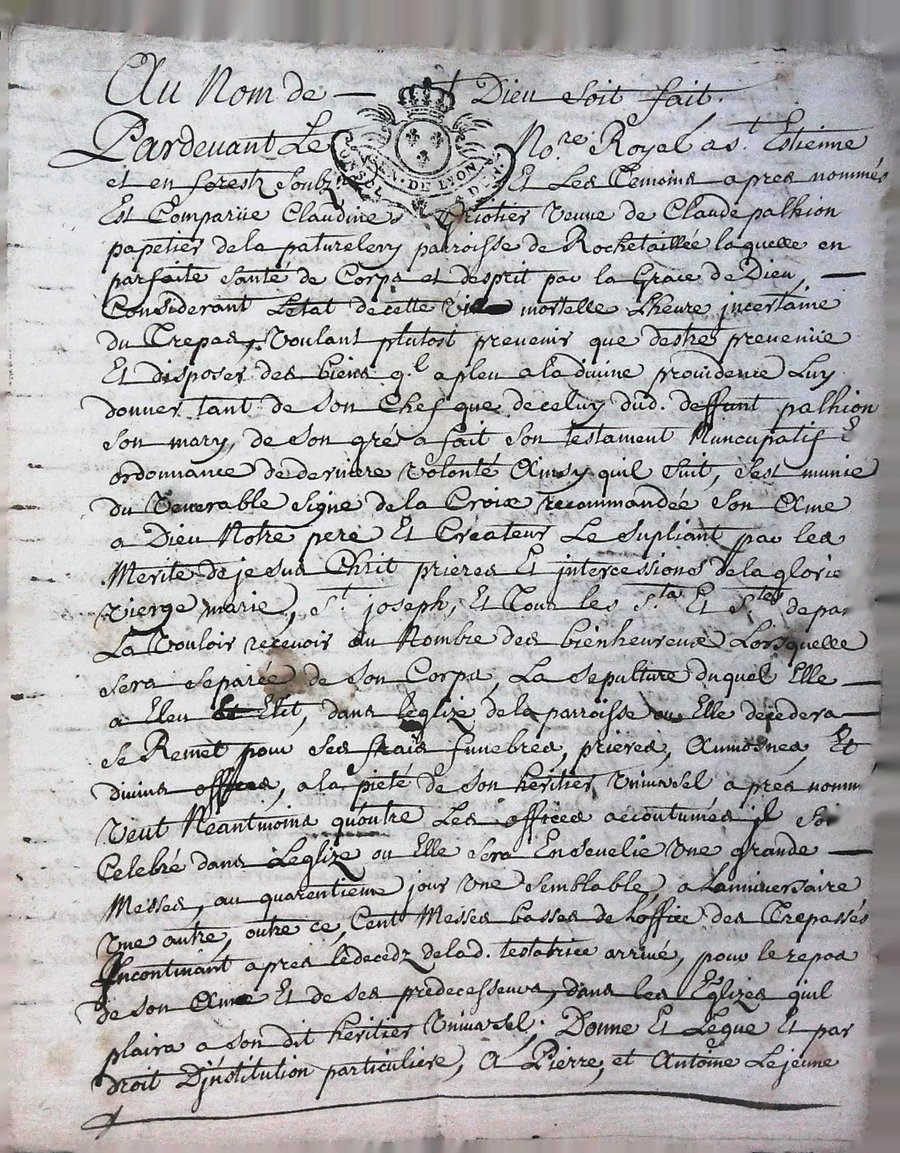 Au Nom de Dieu soit fait.
Pardevant Le No.re Royal a s.t Estienne
et en forestz soubz Et Les Temoins apres nommés
Est Compariie Claudine Triotier Veuve de Claude palhion
papetier de la paturelery parroisse de Rochetaillée laquelle en
parfaite santé de Corps et desprit par la Grace de Dieu,
Considerant Letat de cette Vie mortelle Lheure jncertaine
du Trepas, Voulant plutost prevenir que destre prevenüe
Et disposer des biens q.l a pleu a la divine providence Luy
donner tant de son Chef que de celuy dud. deffunt palhion
son mary, de son gré a fait son testament Nuncupatif Et
ordonnance de derniere Volonté Ainsy quil suit, s'est munie
du Venerable signe de la Croix recommandée son Ame
a Dieu Notre pere Et Créateur Le supliant par les
Merite de jesus Chrit prieres Et intercessions de la glorie
vierge marie, s.t joseph, Et Tous les s.ts Et s.tes de pa
La Vouloir recevoir au Nombre des bienheureux Lorsquelle
sera separée de son Corps, La sepulture duquel Elle
a Eleu Et Elit, dans leglize de la parroisse ou Elle decedera
se Remet pour ses frais funebres, prieres, Aumosnes, Et
divins offices, a la pieté de son heritier Universel apres nomm
Veut Neantmoins quoutre Les offices accoutumés jl soi
Celebré dans Leglize ou Elle sera Ensevelie Une grande
Messes, au quarentieme jour Une semblable, a Lanniversaire
Une autre, outre ce, Cent Messes basses de loffice des Trepassés
Incontinant apres le decedz de lad. testatrice arrivé, pour le repos
de son Ame Et de ses predecesseurs, dans les Eglizes quil
plaira a son dit heritier Universel. Donne Et Legue Et par
droit Djnstitution particuliere, A Pierre, et Antoine Lejeune